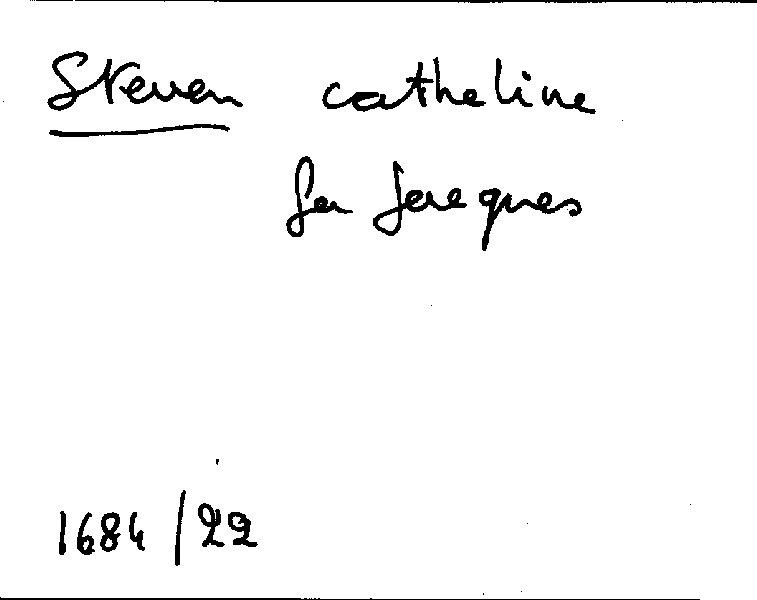 Steven catheline
fa Jacques
1684/22